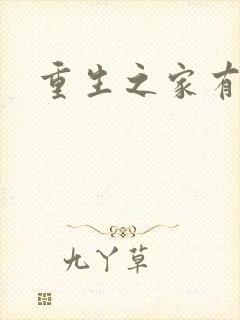 重生之家有
九丫草